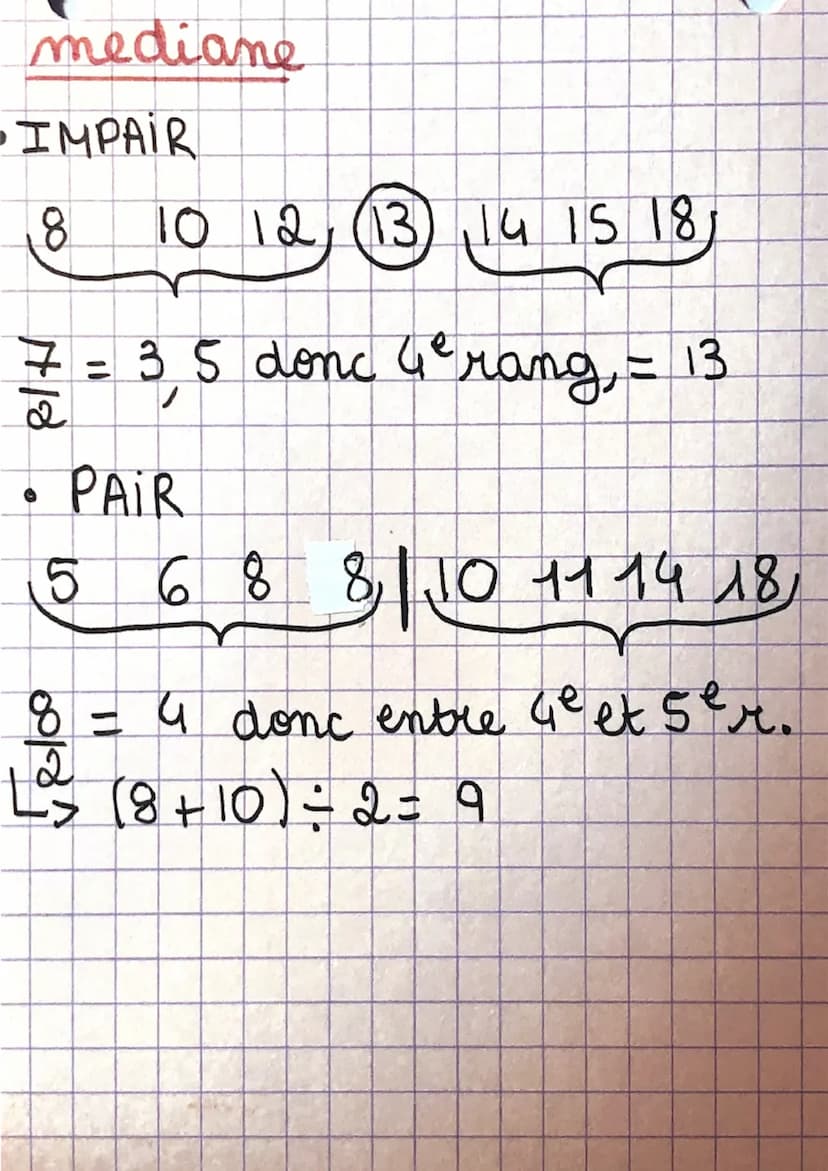 mediane
• IMPAIR
8 10 12 13 14 15 18
7/2 = 3,5 donc 4e rang, = 13
• PAIR
5 6 8 8 | 10 11 14 18
8/2 = 4 donc entre 4e et 5e r.
↳ (8 + 10) ÷ 2 = 9